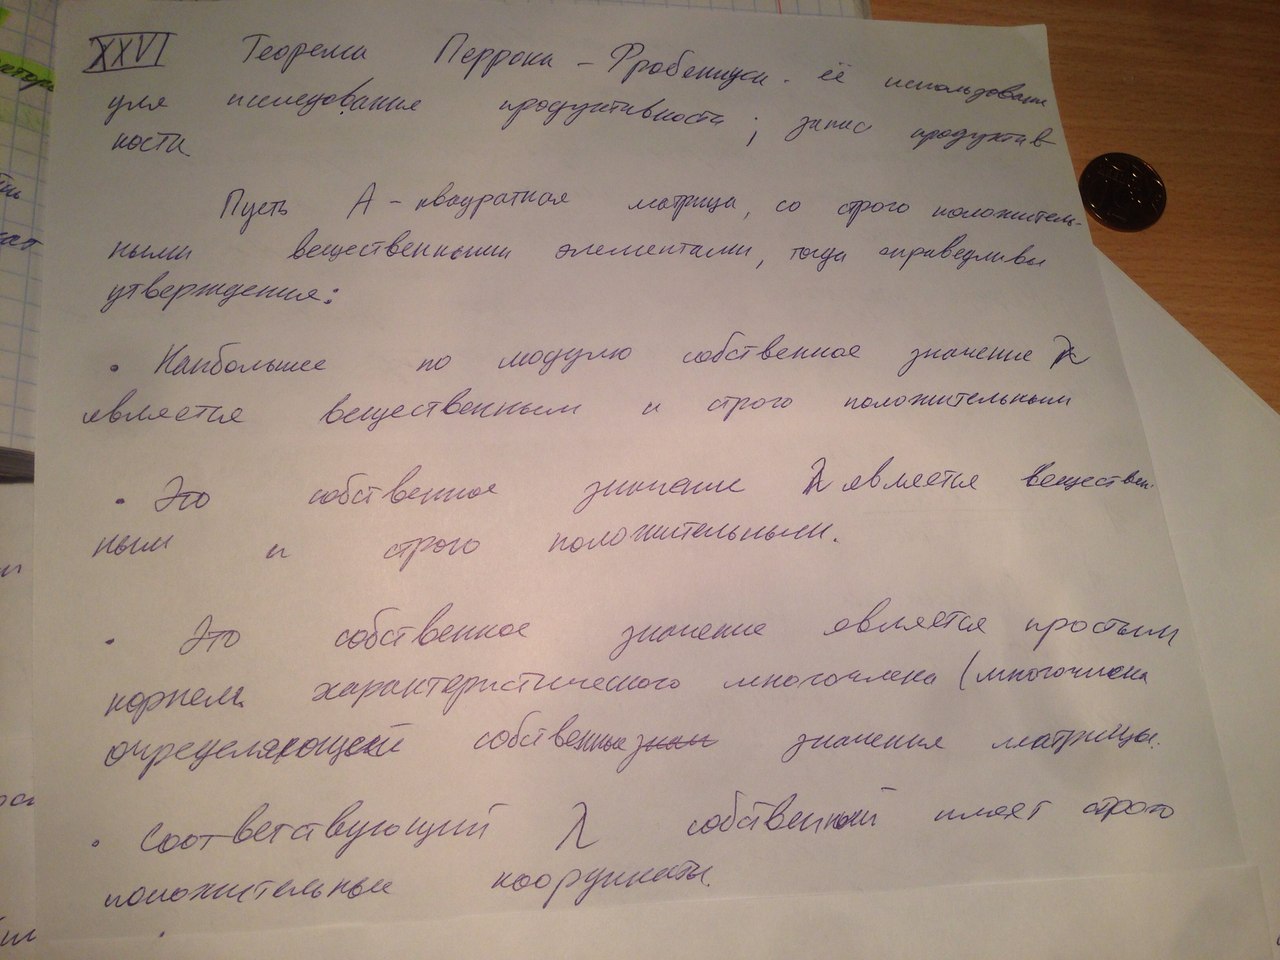 XXVI Теорема Перрона - Фробениуса. её использование
для исследования продуктивности; запас продуктив
ности
Пусть А - квадратная матрица, со строго положитель-
ными вещественными элементами, тогда справедливы
утверждения:
• Наибольшее по модулю собственное значение λ
является вещественным и строго положительным
• Это собственное значение λ является веществен-
ным и строго положительным.
• Это собственное значение является простым
корнем характеристического многочлена (многочлена
определяющей собственные значения матрицы.
• Соответствующий λ собственный имеет строго
положительные координаты.